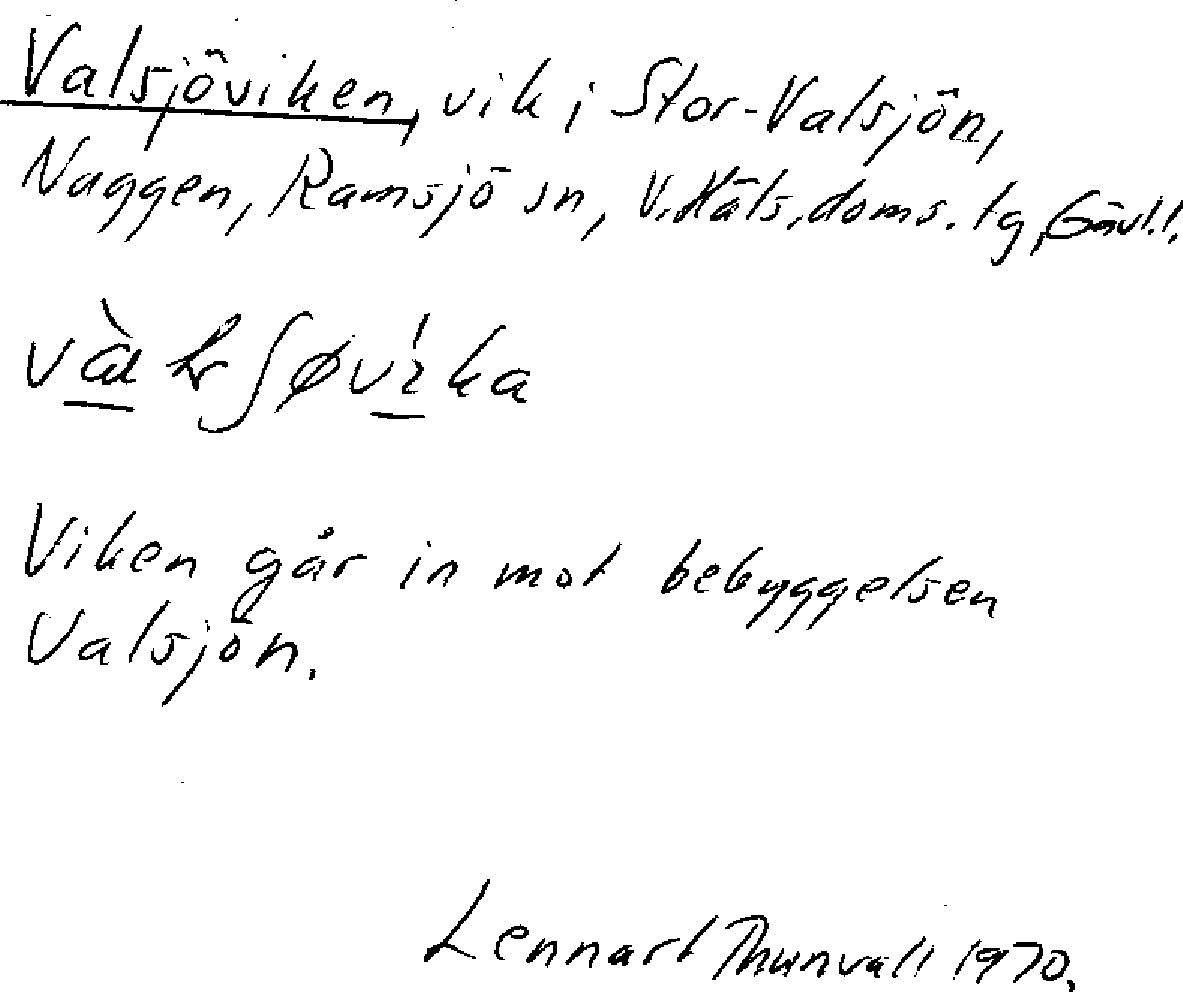 Valsjöviken, vik i Stor-Valsjön,
Naggen, Ramsjö sn, V. Häls. doms. tg, Gävl.l.
Viken går in mot bebyggelsen
Valsjön.
Lennart Thunvall 1970.